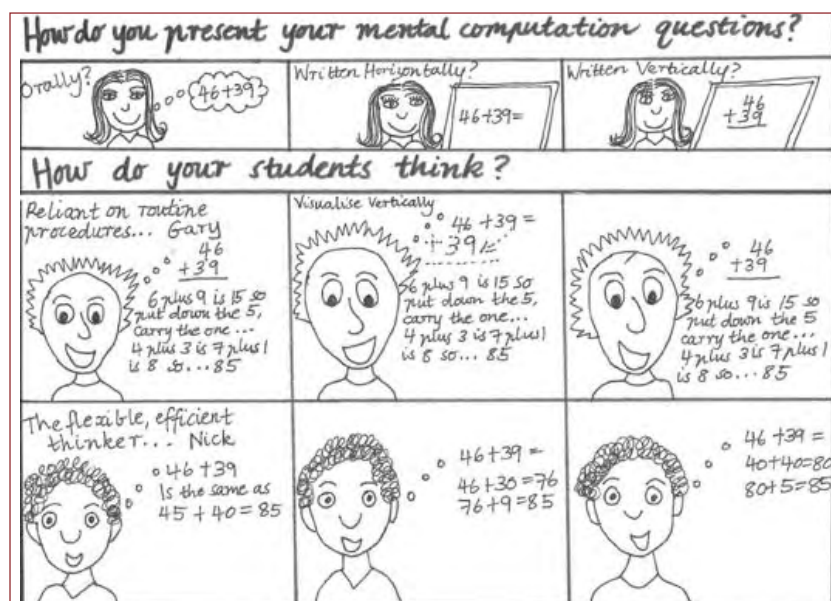 How do you present your mental computation questions?
Orally?
46+39
Written Horizontally?
46+39=
Written Vertically?
46
+39
How do your students think?
Reliant on routine
procedures... Gary
46
+39
6 plus 9 is 15 so
put down the 5,
carry the one...
4 plus 3 is 7 plus 1
is 8 so... 85
Visualise Vertically
46 +39 =
+ 39
6 plus 9 is 15 so
put down the 5,
carry the one...
4 plus 3 is 7 plus 1
is 8 so... 85
46
+39
6 plus 9 is 15 so
put down the 5
carry the one...
4 plus 3 is 7 plus 1
is 8 so... 85
The flexible, efficient
thinker... Nick
46+39
Is the same as
45+40=85
46+39=
46+30=76
76+9=85
46+39=
40+40=80
80+5=85